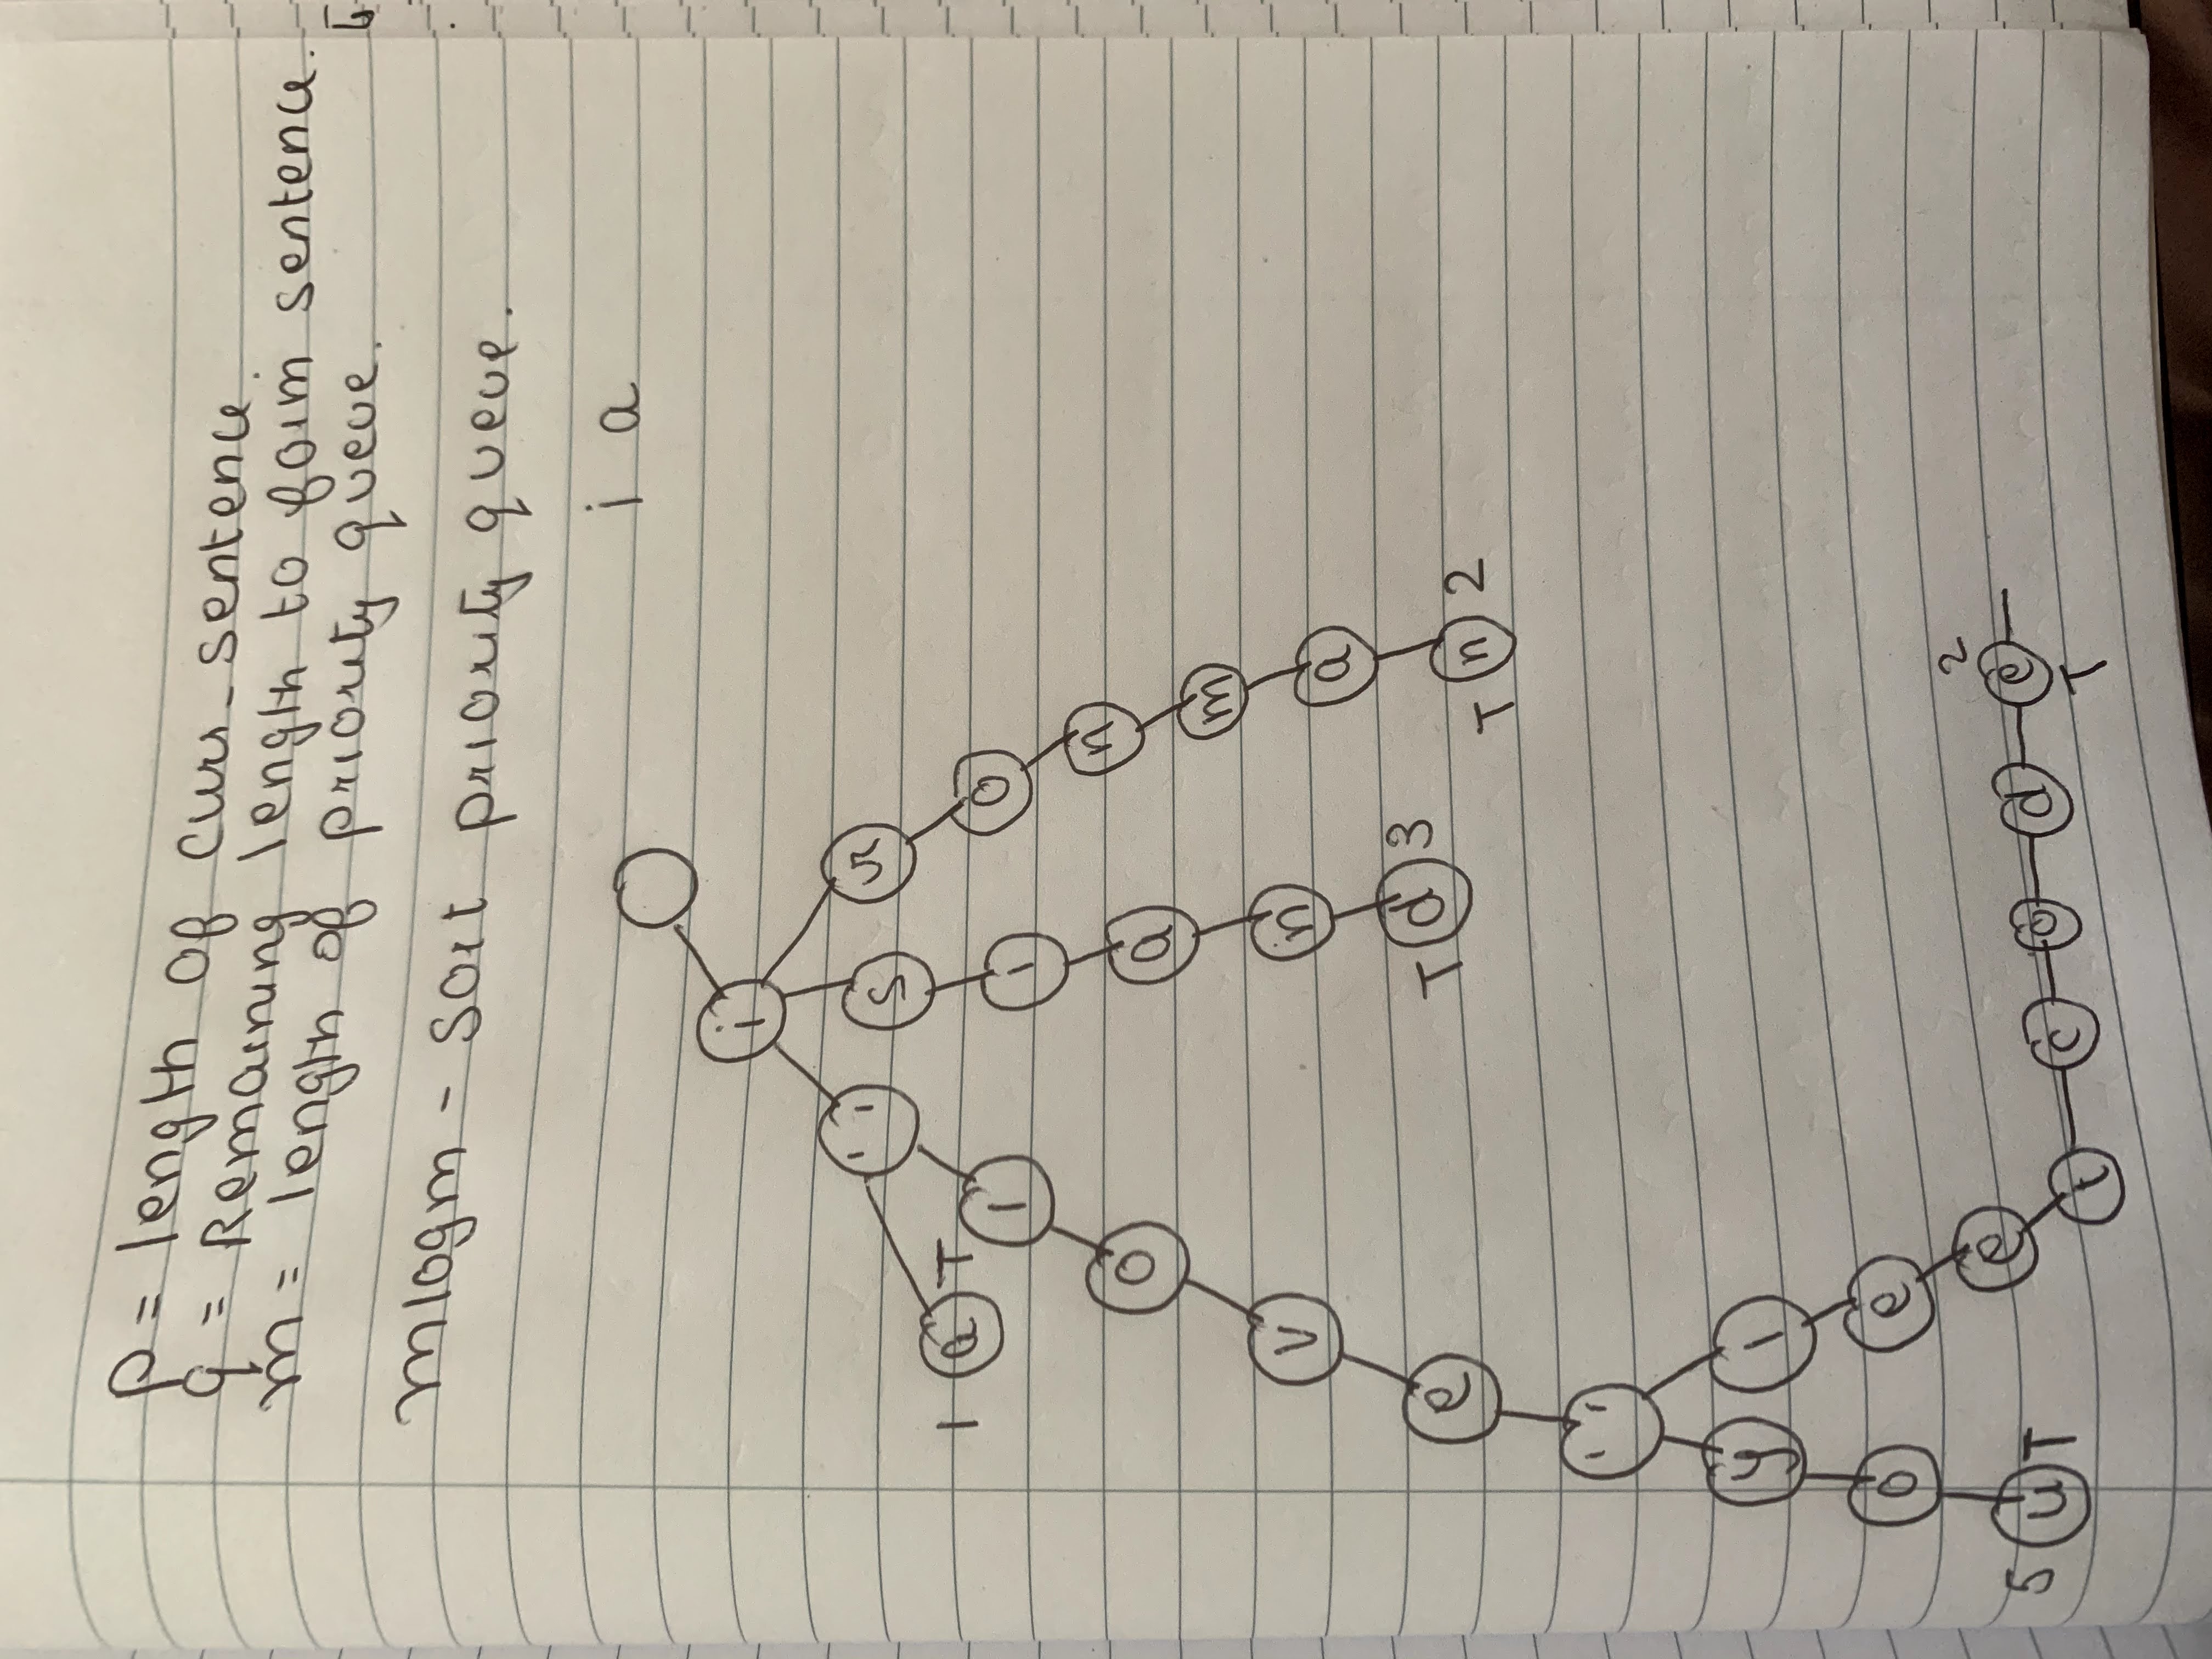 p = length of curr_sentence.
q = Remaining length to form sentence.
m = length of priority queue.
mlogm - sort priority queue.
i a
i
' ' s r
1 a T l l o
o a n
v n m
e T d 3 a
' ' T n 2
y l
o e
5 u T e
t c o d e 2
T